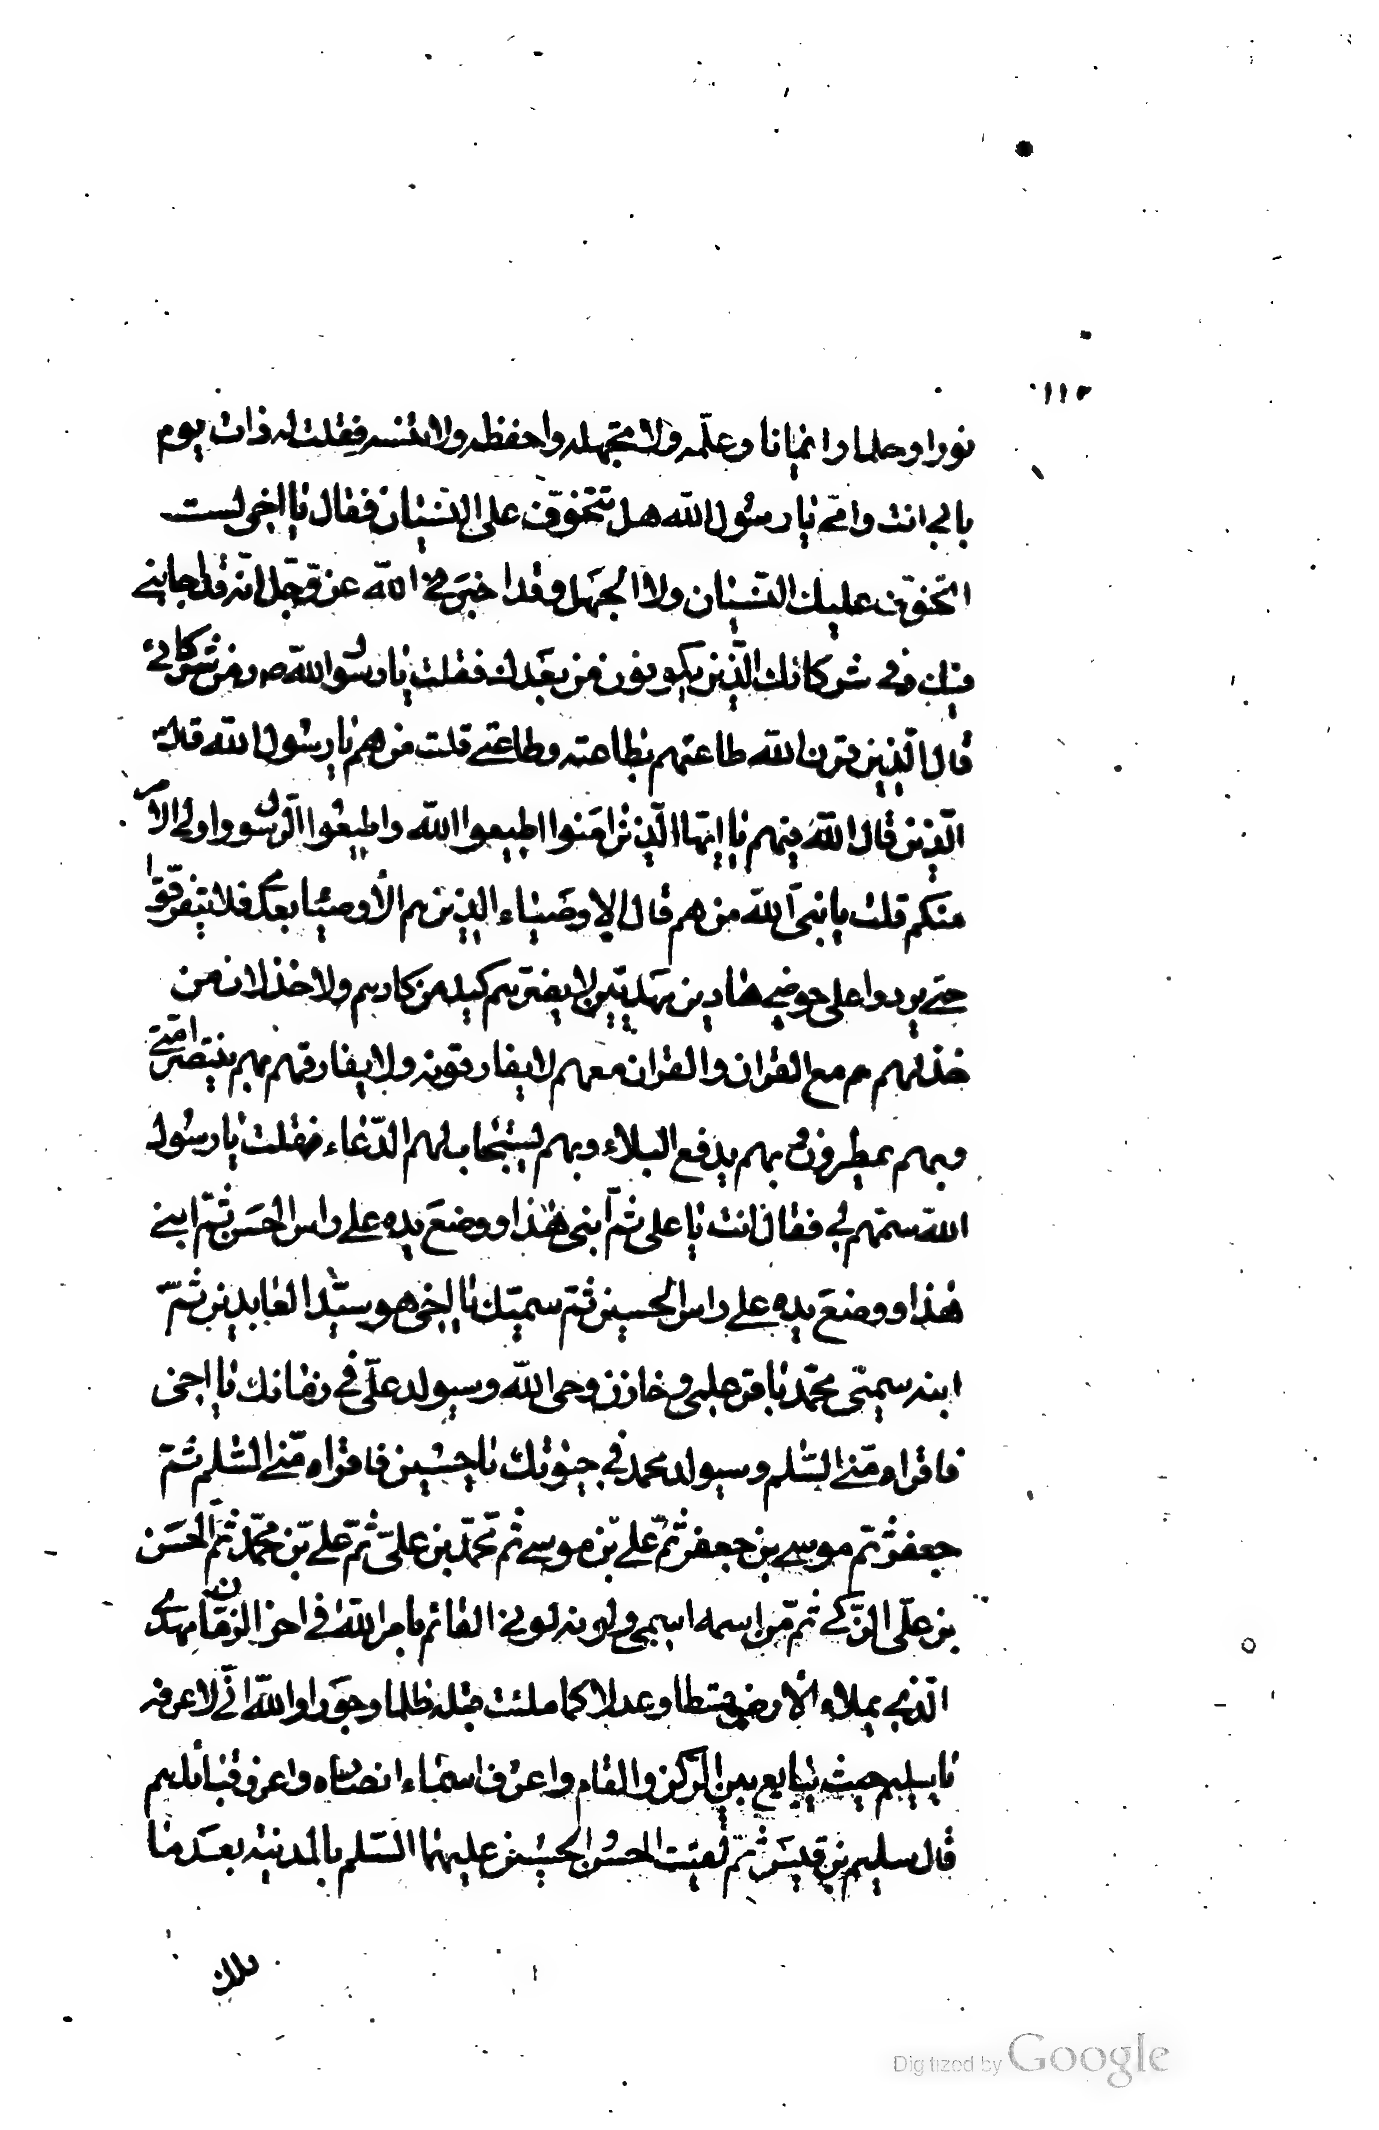 ١١٣
نورا وحلما وايمانا وعلّمه ولا تجهله واحفظه ولا تنسه فقلت له ذات يوم
بابى انت وامّى يا رسول الله هل تتخوّف علىّ النّسيان فقال يا اخى لست
اتخوّف عليك النّسيان ولا الجهل وقد اخبرنى الله عزّ وجلّ انّه قد اجابنى
فيك وفى شركائك الّذين يكونون من بعدك فقلت يا رسول الله ص ومن شركائى
قال الّذين قرن الله طاعتهم بطاعته وطاعتى قلت من هم يا رسول الله قال
الّذين قال الله فيهم يا ايّها الّذين امنوا اطيعوا الله واطيعوا الرّسول واولى الأمر
منكم قلت يا نبىّ الله من هم قال الاوصياء الّذين هم الأوصياء بعدى فلا يتفرّقوا
حتى يردوا على حوضى هادين مهديّين لا يضرّهم كيد من كادهم ولا خذلان من
خذلهم هم مع القران والقران معهم لا يفارقونه ولا يفارقهم بهم ينتصر امّتى
وبهم يمطرون وبهم يدفع البلاء وبهم يستجاب لهم الدّعاء فقلت يا رسول
الله سمّهم لى فقال انت يا على ثم ابنى هذا ووضع يده على راس الحسن ثمّ ابنى
هذا ووضع يده على راس الحسين ثمّ سميّك يا اخى هو سيّد العابدين ثمّ
ابنه سميّى محمّد باقر علمى وخازن وحى الله وسيولد علّى فى زمانك يا اخى
فاقراه منّى السّلم وسيولد محمد فى حيوتك يا حسين فاقراه منّى السّلم ثمّ
جعفر ثمّ موسى بن جعفر ثمّ على بن موسى ثم محمّد بن علىّ ثمّ على بن محمّد ثمّ الحسن
بن علّى الزّكى ثمّ من اسمه اسمى ولونه لونى القائم بامر الله فى اخر الزّمان مهدى
الّذى يملاء الأرض قسطا وعدلا كما ملئت قبله ظلما وجورا والله انّى لاعرفه
يا سليم حيث يبايع بين الرّكن والمقام واعرف اسماء انصاره واعرف قبائلهم
قال سليم بن قيس ثمّ لقيت الحسن والحسين عليهما السّلم بالمدينة بعد ما
ملك
Digitized by Google